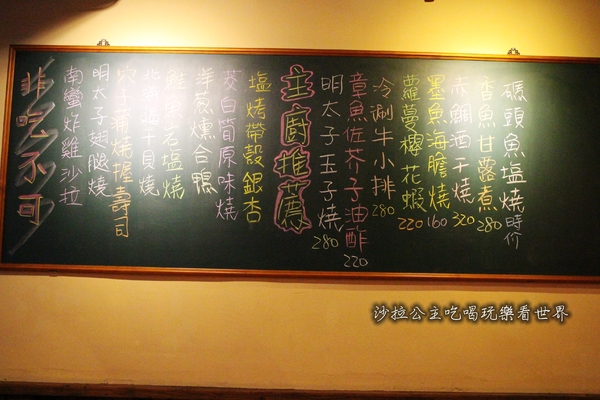 碼頭魚塩燒 時价
香魚甘露煮 280
赤鯛酒干燒 320
墨魚海膽燒 160
蘿蔓櫻花蝦 220
冷涮牛小排 280
章魚佐芥子油酢 220
明太子玉子燒 280
主廚推薦
塩烤帶殼銀杏
茭白筍原味燒
洋蔥燻合鴨
穴子蒲燒握壽司
明太子翅腿燒
南蠻炸雞沙拉
非吃不可
沙拉公主吃喝玩樂看世界